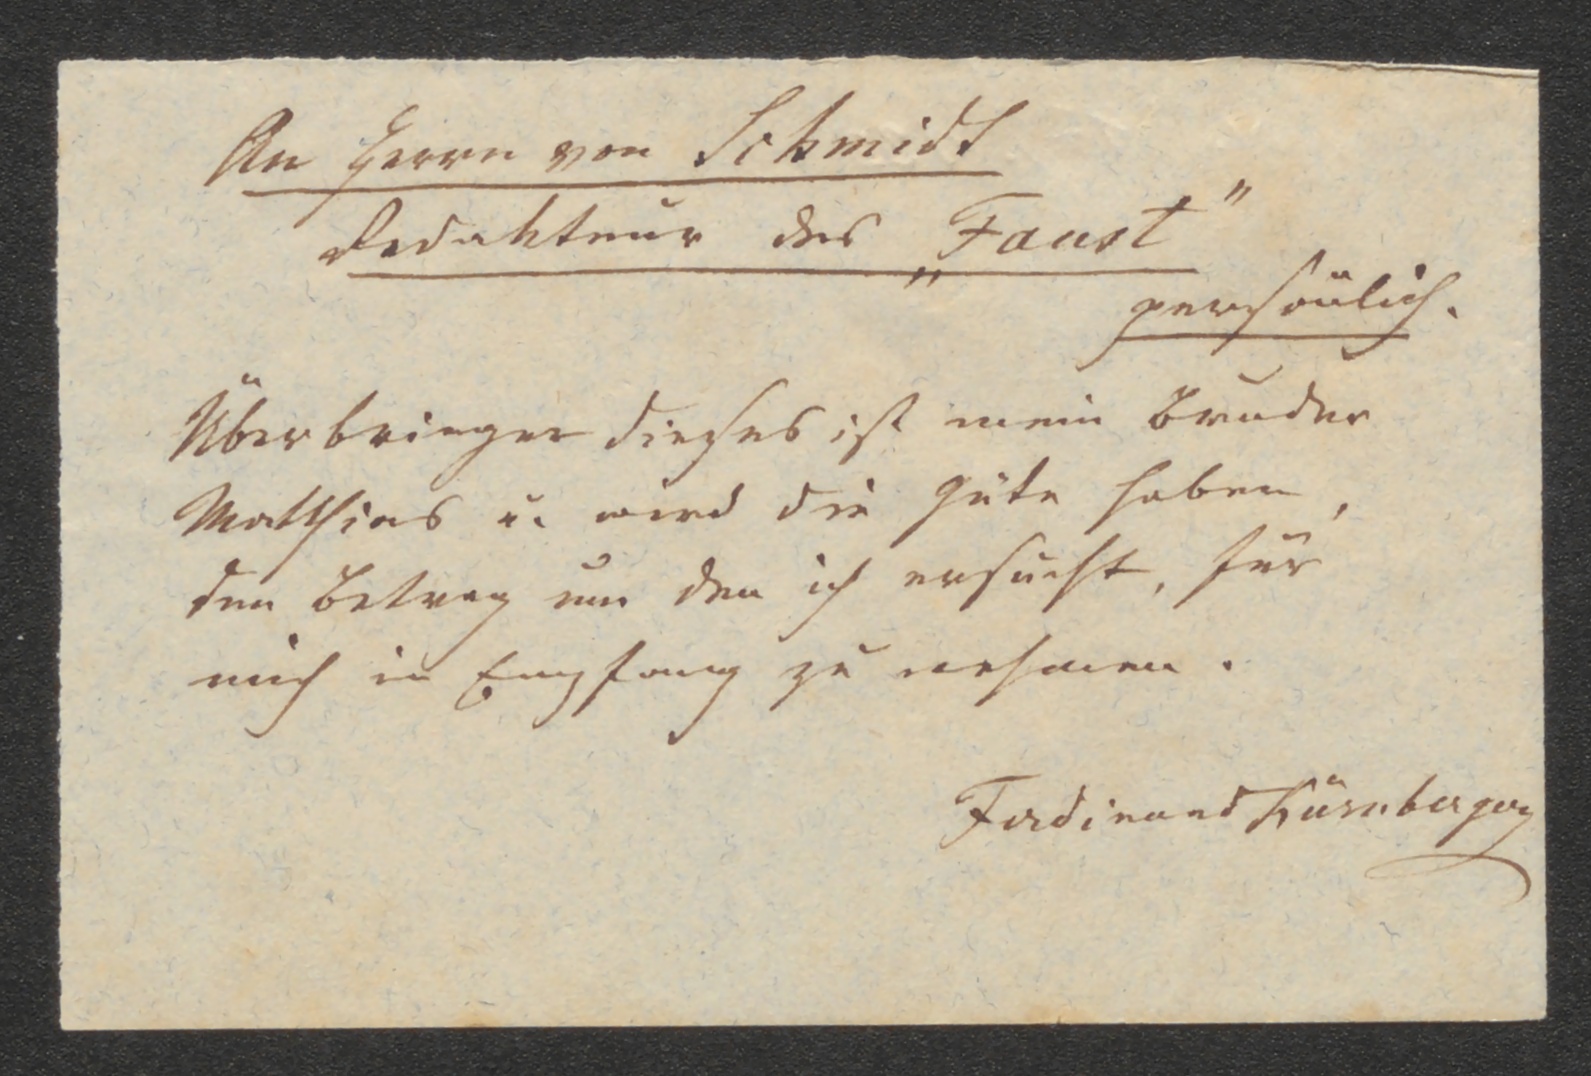 An Herrn von Schmidt
Redakteur des „Faust"
persönlich.
Überbringer dieses ist mein Bruder
Matthias u. wird die Güte haben,
den Betrag um den ich ersucht, für
mich in Empfang zu nehmen.
Ferdinand Kürnberger